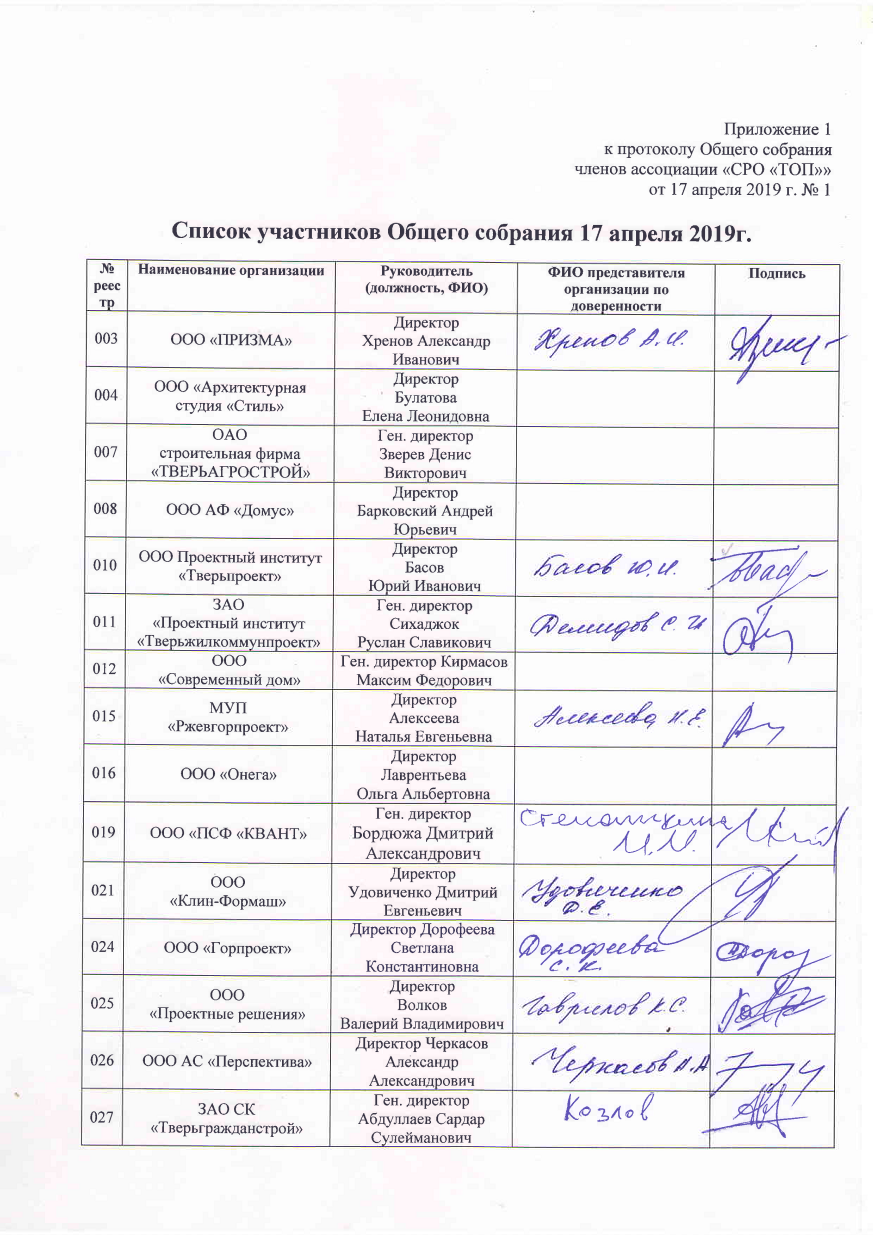 Приложение 1
к протоколу Общего собрания
членов ассоциации «СРО «ТОП»»
от 17 апреля 2019 г. № 1
Список участников Общего собрания 17 апреля 2019г.
№
реес
тр
Наименование организации
Руководитель
(должность, ФИО)
ФИО представителя
организации по
доверенности
Подпись
003
ООО «ПРИЗМА»
Директор
Хренов Александр
Иванович
Хренов А.И.
004
ООО «Архитектурная
студия «Стиль»
Директор
Булатова
Елена Леонидовна
007
ОАО
строительная фирма
«ТВЕРЬАГРОСТРОЙ»
Ген. директор
Зверев Денис
Викторович
008
ООО АФ «Домус»
Директор
Барковский Андрей
Юрьевич
010
ООО Проектный институт
«Тверьпроект»
Директор
Басов
Юрий Иванович
Басов Ю.И.
011
ЗАО
«Проектный институт
«Тверьжилкоммунпроект»
Ген. директор
Сихаджок
Руслан Славикович
Демидов С. И
012
ООО
«Современный дом»
Ген. директор Кирмасов
Максим Федорович
015
МУП
«Ржевгорпроект»
Директор
Алексеева
Наталья Евгеньевна
Алексеева Н.Е.
016
ООО «Онега»
Директор
Лаврентьева
Ольга Альбертовна
019
ООО «ПСФ «КВАНТ»
Ген. директор
Бордюжа Дмитрий
Александрович
И.И.
021
ООО
«Клин-Формаш»
Директор
Удовиченко Дмитрий
Евгеньевич
Удовиченко
Д.Е.
024
ООО «Горпроект»
Директор Дорофеева
Светлана
Константиновна
Дорофеева
С.К.
025
ООО
«Проектные решения»
Директор
Волков
Валерий Владимирович
Гаврилов К.С.
026
ООО АС «Перспектива»
Директор Черкасов
Александр
Александрович
Черкасов А.А
027
ЗАО СК
«Тверьгражданстрой»
Ген. директор
Абдуллаев Сардар
Сулейманович
Козлов